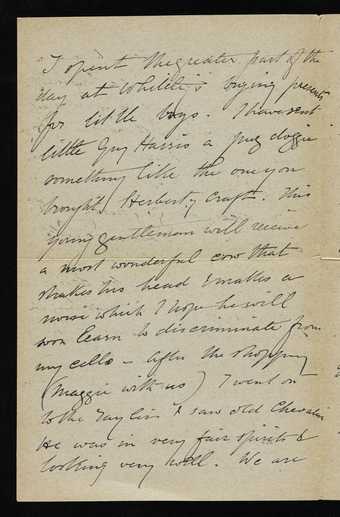 I spent the greater part of the
day at Whitely's buying presents
for little boys. I have sent
little Guy Harris a pug doggie
something like the one you
brought Herbert Craft. This
young gentleman will receive
a most wonderful cow that
shakes his head & makes a
noise which I hope he will
soon learn to discriminate from
my cello – After the shopping
(Maggie with us) I went on
to the & saw old Chevalier
He was in very fair spirits &
looking very well. We are